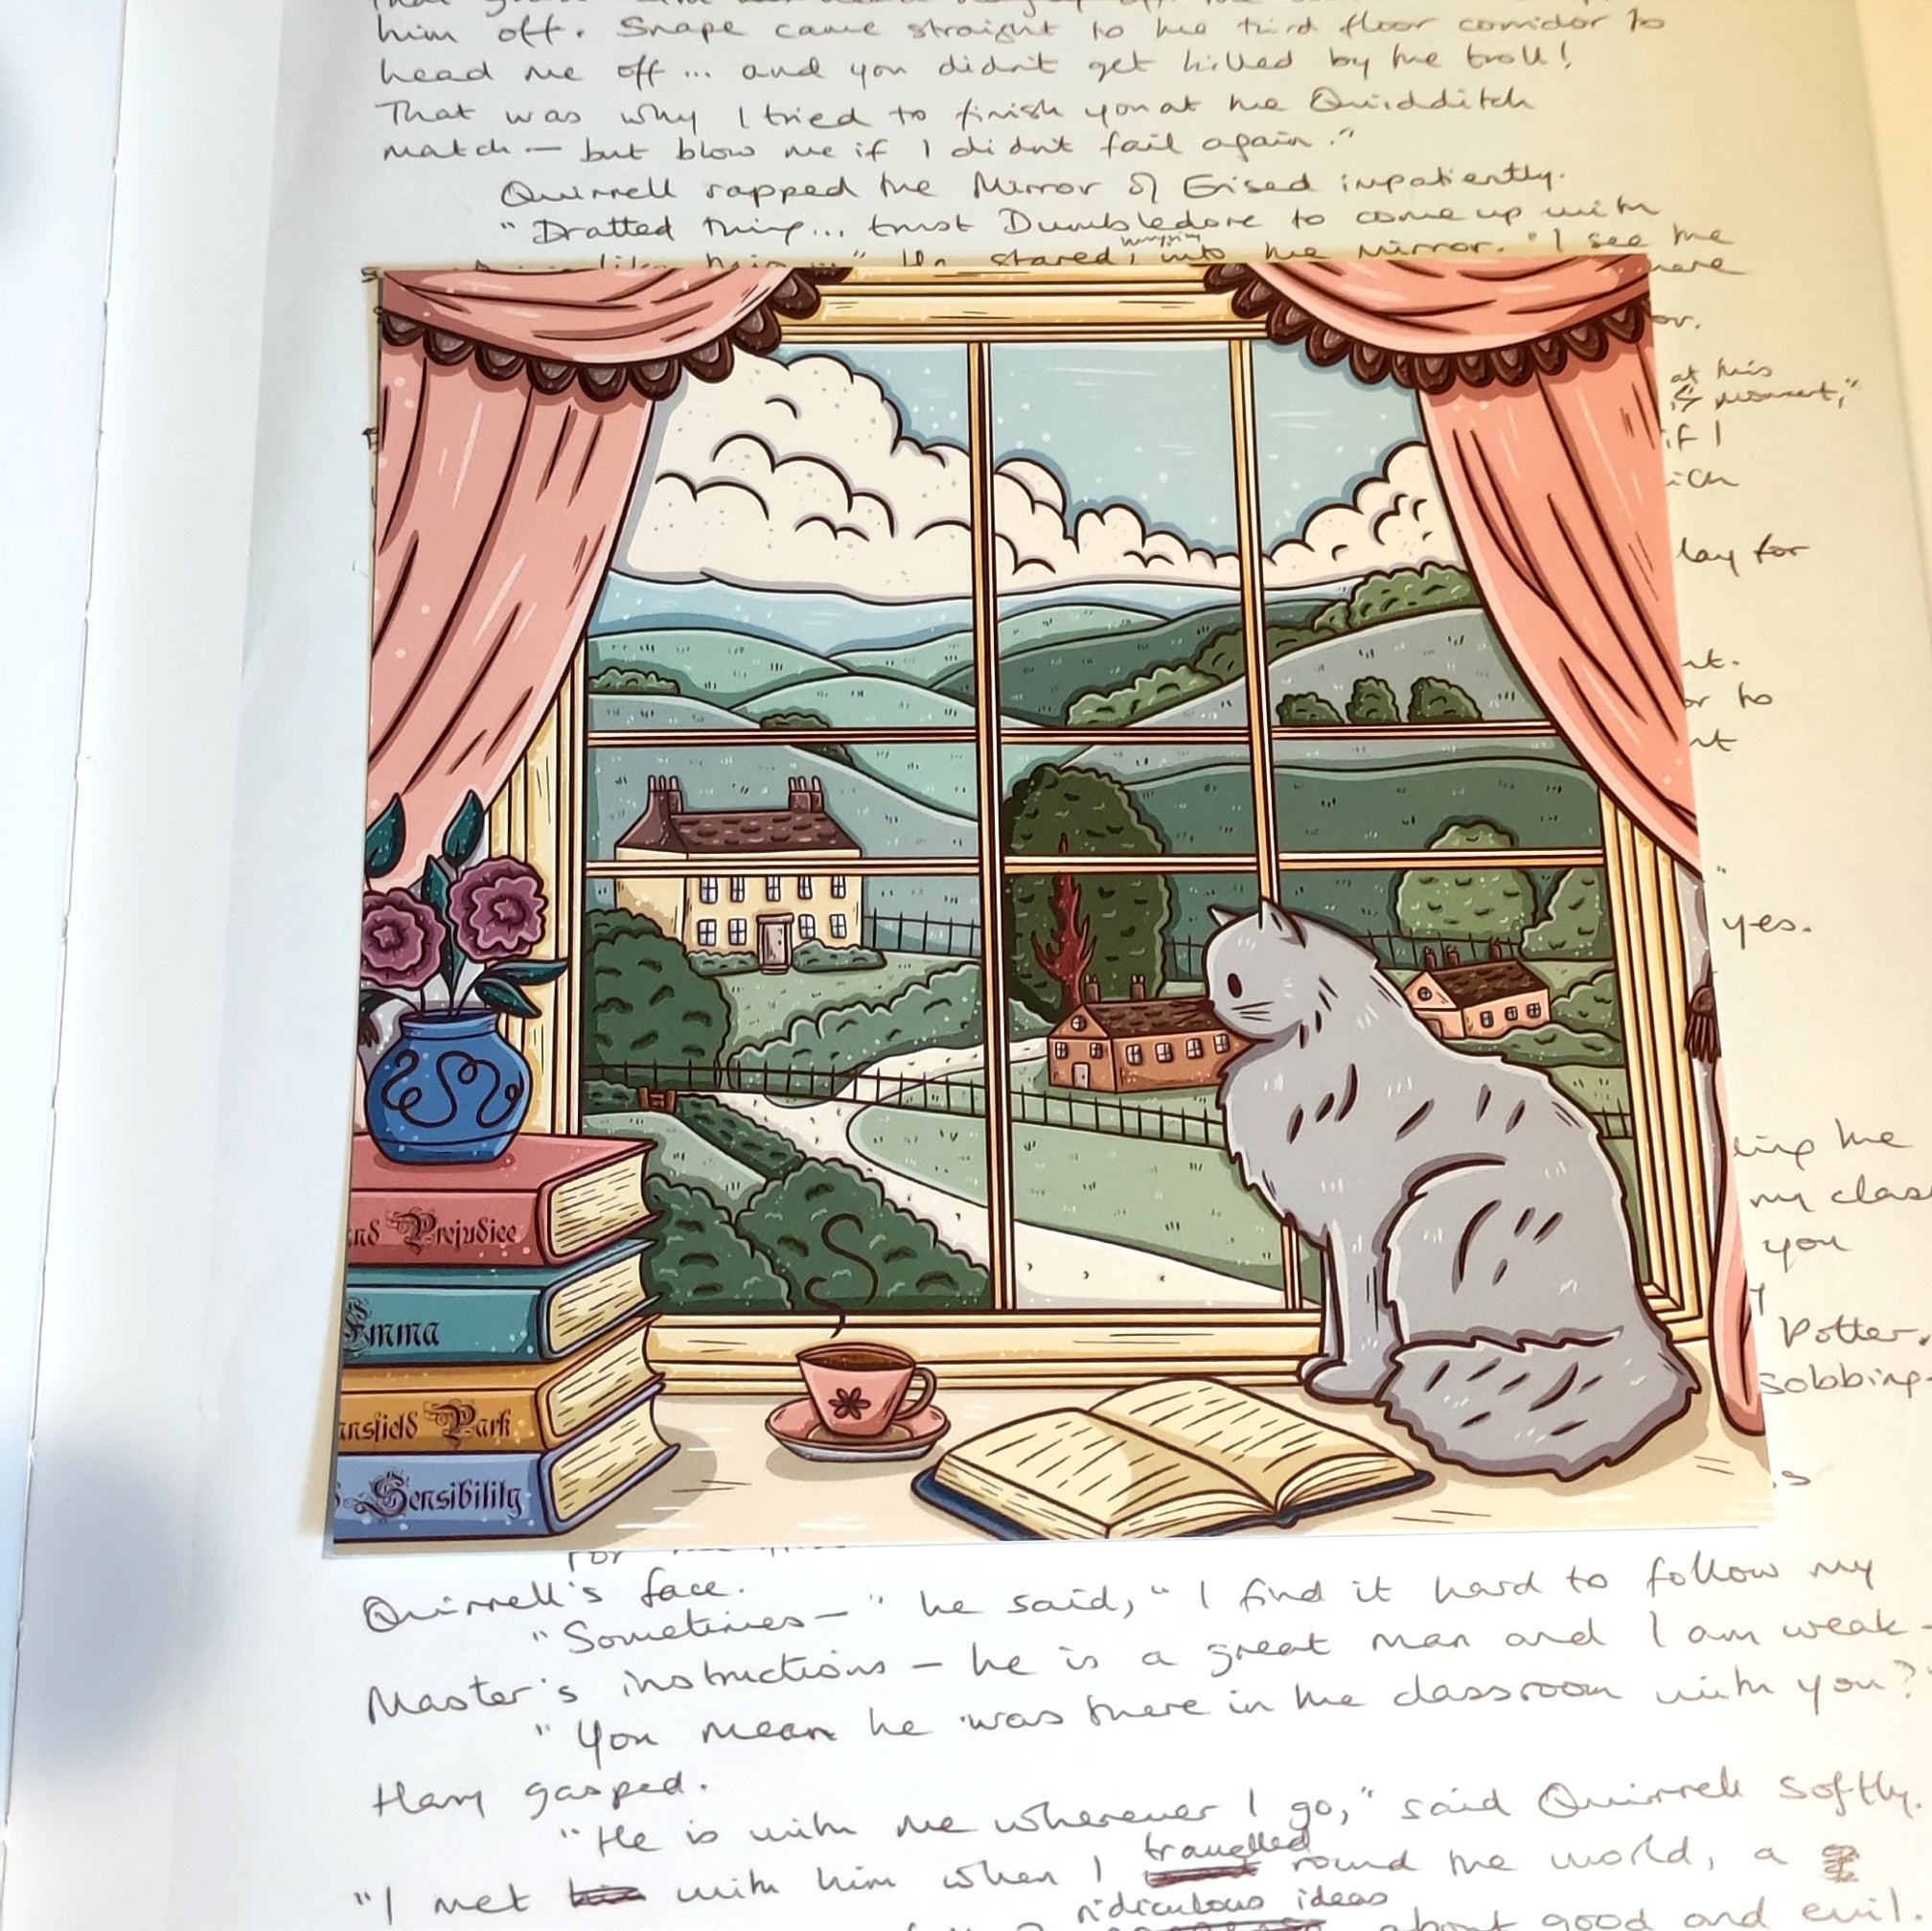 him off. Snape came straight to the third floor corridor to
head me off... and you didn't get killed by the troll!
That was why I tried to finish you at the Quidditch
match — but blow me if I didn't fail again."
Quirrell rapped the Mirror of Erised impatiently.
"Dratted thing... trust Dumbledore to come up with
stared into the Mirror. "I see the
or.
at his
moment,"
if I
lay for
or to
yes.
nd Prejudice
ing the
my class
you
Emma
Potter.
sobbing
ansfield Park
Sensibility
Quirrell's face.
"Sometimes — " he said, "I find it hard to follow my
Master's instructions — he is a great man and I am weak -
"You mean he was there in the classroom with you?"
Harry gasped.
"He is with me wherever I go," said Quirrell softly.
travelled
"I met with him when I round the world, a
ridiculous ideas
about good and evil.